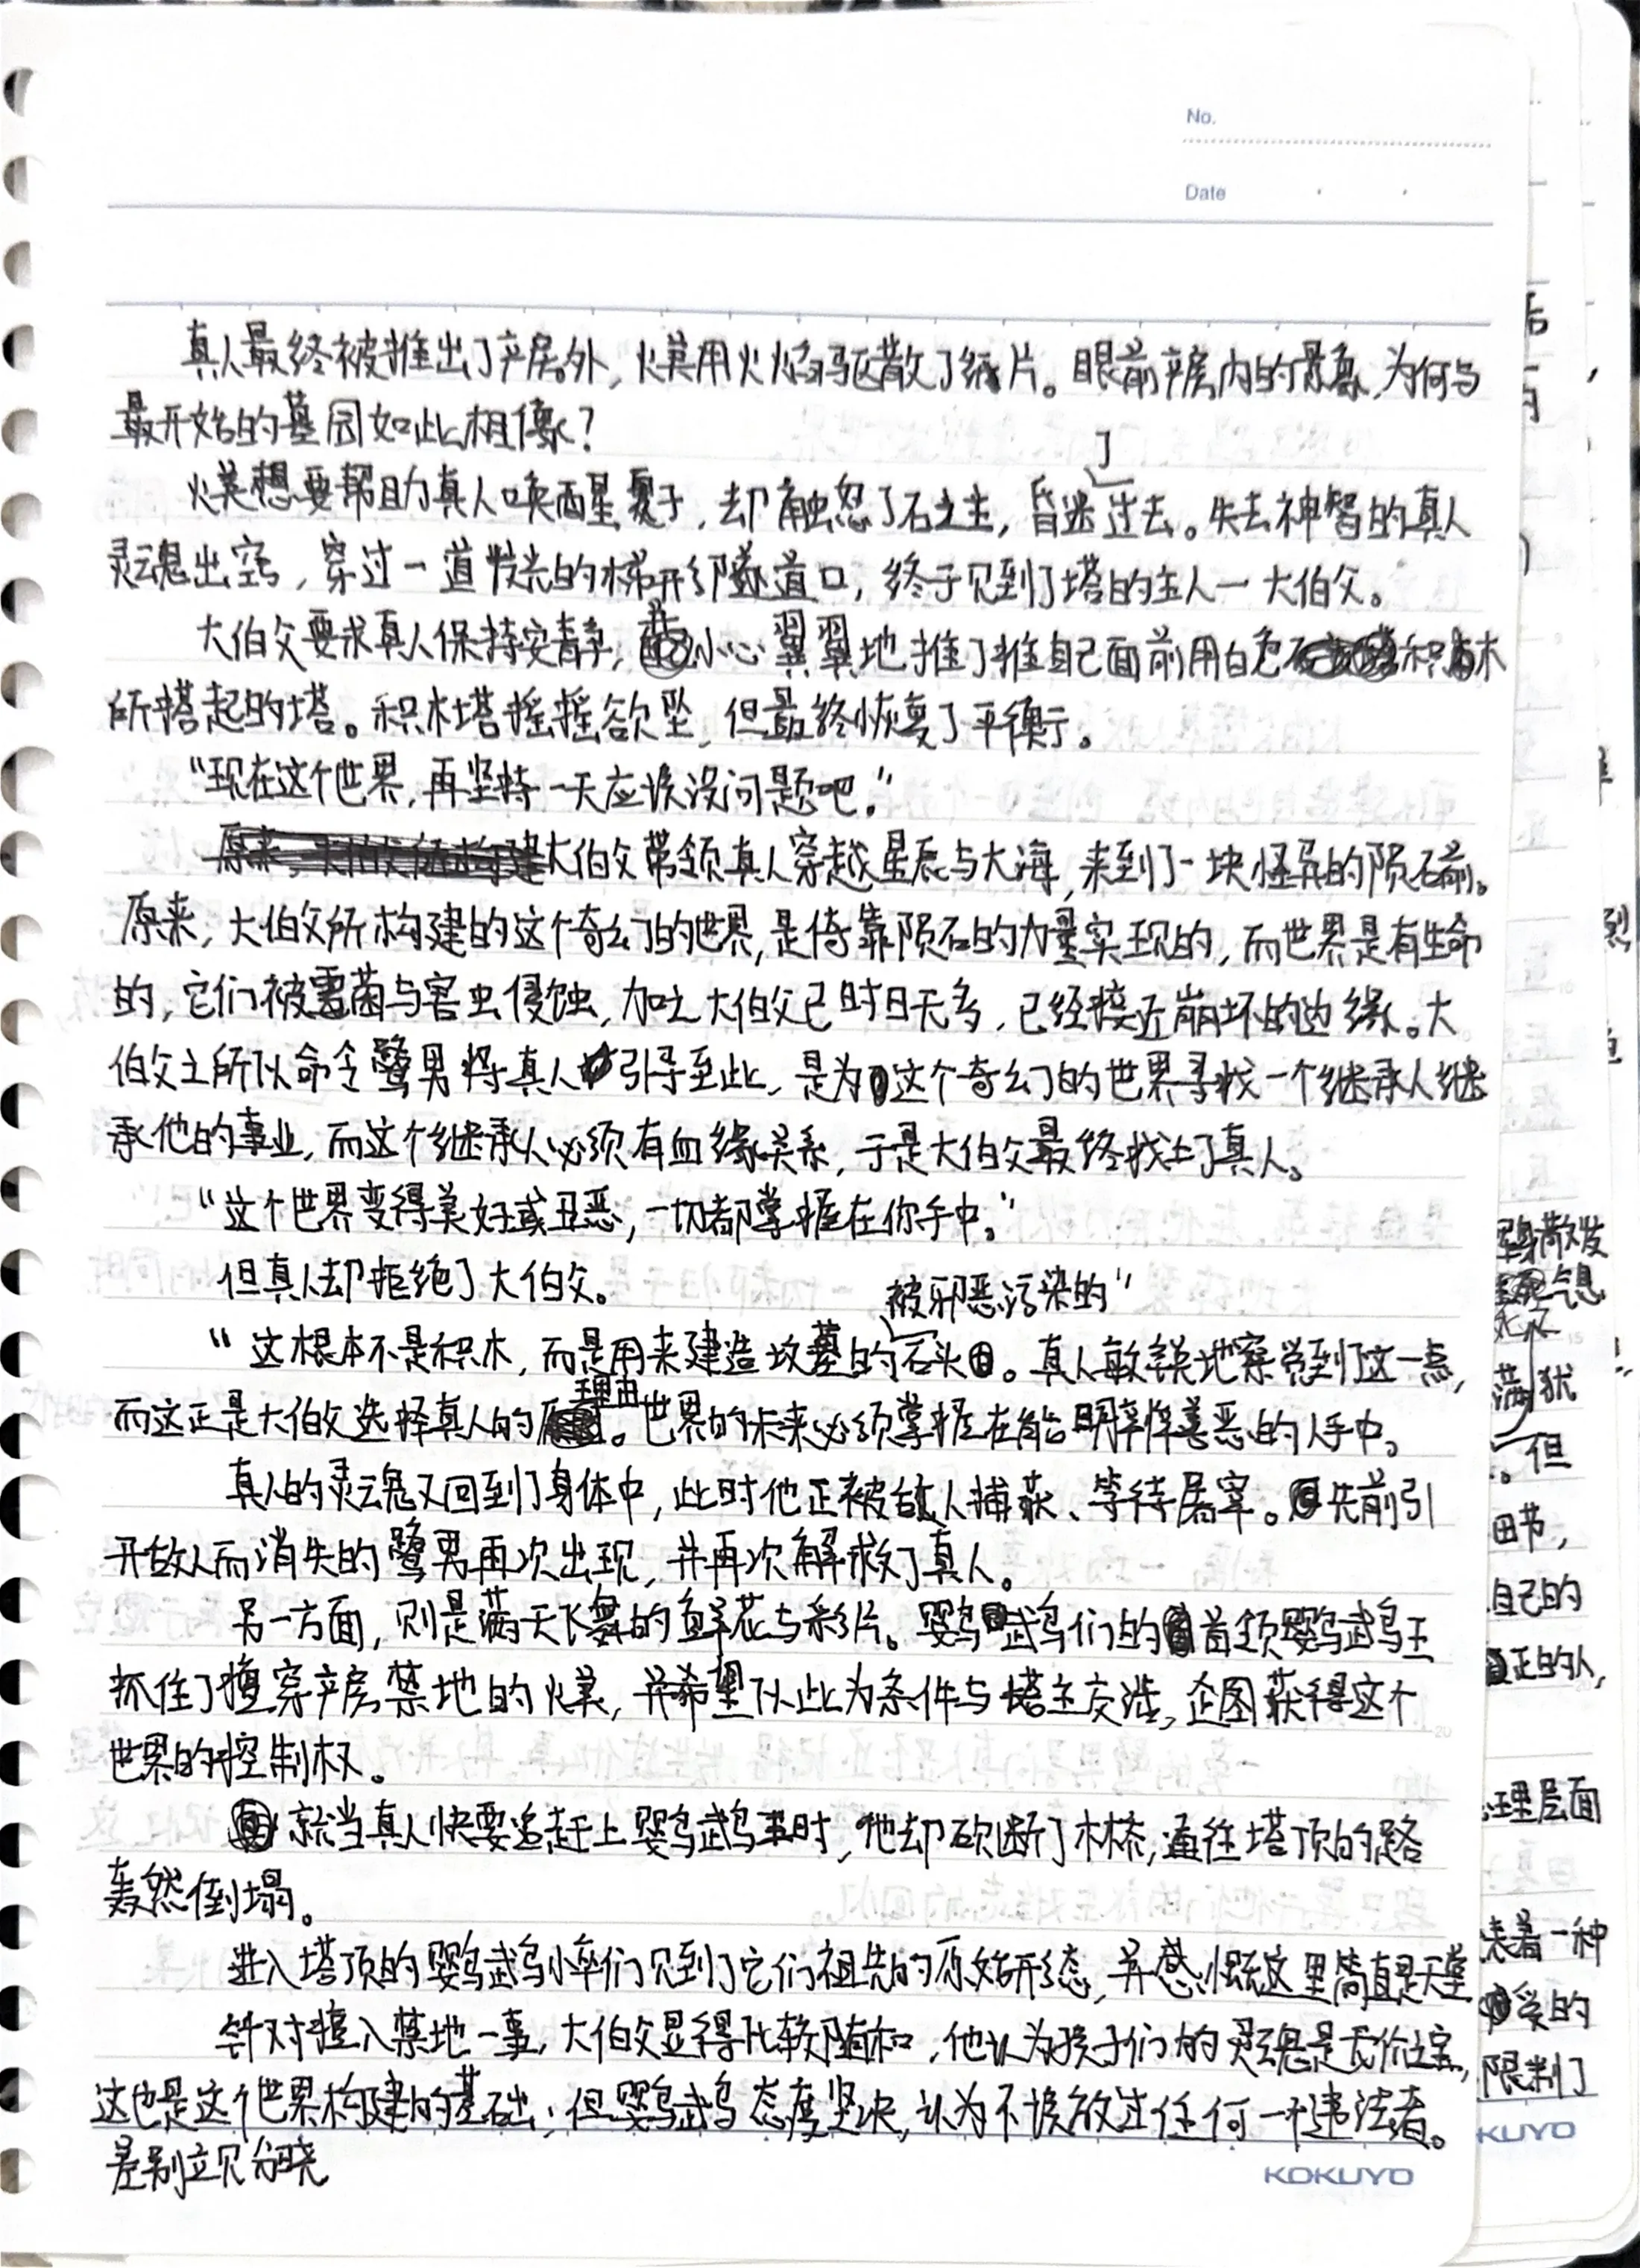 No.
Date
真人最终被推出了产房外，火美用火焰驱散了纸片。眼前产房内的景象，为何与
最开始的墓园如此相像？
火美想要帮助真人唤醒夏子，却触怒了石之主，昏迷了过去。失去神智的真人
灵魂出窍，穿过一道发光的梯形隧道口，终于见到了塔的主人—大伯父。
大伯父要求真人保持安静，并小心翼翼地推了推自己面前用白色石积木
所搭起的塔。积木塔摇摇欲坠，但最终恢复了平衡。
“现在这个世界，再坚持一天应该没问题吧。”
大伯父带领真人穿越星辰与大海，来到了一块怪异的陨石前。
原来，大伯父所构建的这个奇幻的世界，是倚靠陨石的力量实现的，而世界是有生命
的，它们被霉菌与害虫侵蚀，加之大伯父已时日无多，已经接近崩坏的边缘。大
伯父之所以命令鹭男将真人引导至此，是为这个奇幻的世界寻找一个继承人继
承他的事业，而这个继承人必须有血缘关系，于是大伯父最终找上了真人。
“这个世界变得美好或丑恶，一切都掌握在你手中。”
但真人却拒绝了大伯父。
“这根本不是积木，而是用来建造坟墓的被邪恶污染的”石头。真人敏锐地察觉到了这一点，
而这正是大伯父选择真人的理由。世界的未来必须掌握在能明辨善恶的人手中。
真人的灵魂又回到了身体中，此时他正被敌人捕获、等待屠宰。先前引
开敌人而消失的鹭男再次出现，并再次解救了真人。
另一方面，则是满天飞舞的鲜花与彩片。鹦鹉们的首领鹦鹉王
抓住了擅穿产房禁地的火美，并希望以此为条件与塔主交涉，企图获得这个
世界的控制权。
就当真人快要追赶上鹦鹉王时，他却砍断了木梯，通往塔顶的路
轰然倒塌。
进入塔顶的鹦鹉小卒们见到了它们祖先的原始形态，并感慨这里简直是天堂。
针对擅入禁地一事，大伯父显得比较随和，他认为孩子们的灵魂是无价之宝，
这也是这个世界构建的基础；但鹦鹉态度坚决，认为不该放过任何一个违法者。
差别立见分晓
KOKUYO
散发
气息
满犹
。但
田节，
自己的
正的人，
理层面
表着一种
受的
限制了
KUYO